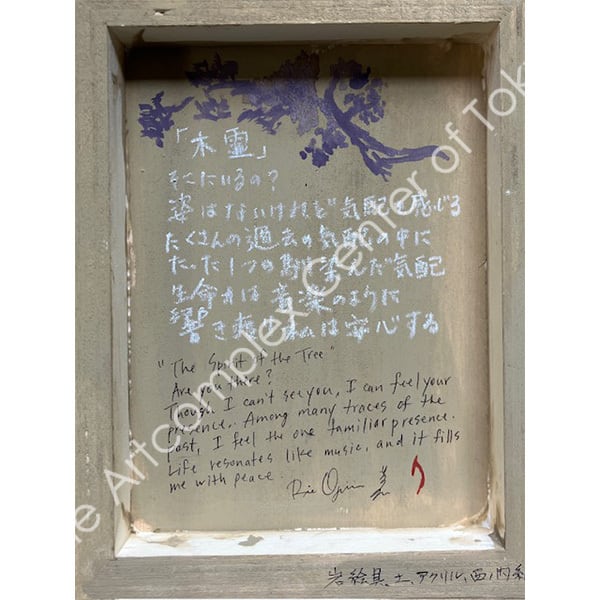 「木霊」
そこにいるの?
姿はないけれど気配を感じる
たくさんの過去の気配の中に
たった1つの馴染んだ気配
生命は音楽のように
響き 私は安心する
"The Spirit of the Tree"
Are you there?
Though I can't see you, I can feel your
presence. Among many traces of the
past, I feel the one familiar presence.
Life resonates like music, and it fills
me with peace.
Rie
岩絵具、土、アクリル、西ノ内
The Artcomplex Center of Tok